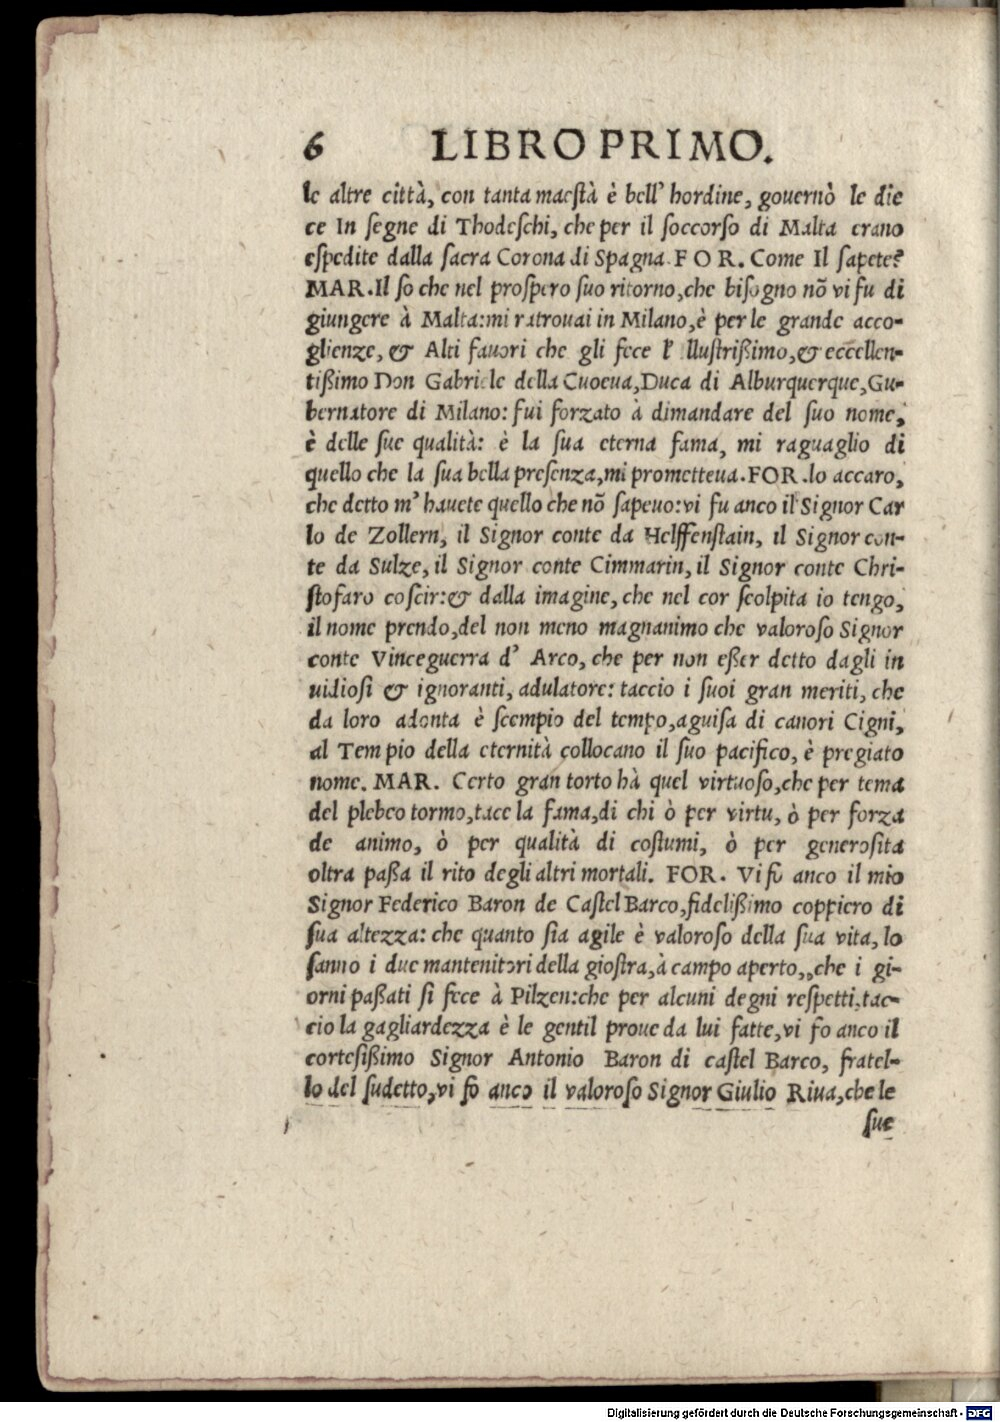 6 LIBRO PRIMO.
le altre città, con tanta maeſtà è bell' hordine, gouernò le die
ce In ſegne di Thodeſchi, che per il ſoccorſo di Malta erano
eſpedite dalla ſacra Corona di Spagna. FOR. Come Il ſapete?
MAR. Il ſo che nel proſpero ſuo ritorno, che biſogno nõ vi fu di
giungere à Malta: mi ritrouai in Milano, è per le grande acco-
glienze, & Alti fauori che gli fece l' Illuſtrißimo, & eccellen-
tißimo Don Gabriele della Cuoeua, Duca di Alburquerque, Gu-
bernatore di Milano: fui forzato à dimandare del ſuo nome,
è delle ſue qualità: è la ſua eterna fama, mi raguaglio di
quello che la ſua bella preſenza, mi prometteua. FOR. Io accaro,
che detto m' hauete quello che nõ ſapeuo: vi fu anco il Signor Car
lo de Zollern, il Signor conte da Helffenſtain, il Signor con-
te da Sulze, il Signor conte Cimmarin, il Signor conte Chri-
ſtofaro coſcir: & dalla imagine, che nel cor ſcolpita io tengo,
il nome prendo, del non meno magnanimo che valoroſo Signor
conte Vinceguerra d' Arco, che per non eßer detto dagli in
uidioſi & ignoranti, adulatore: taccio i ſuoi gran meriti, che
da loro adonta è ſcempio del tempo, aguiſa di canori Cigni,
al Tempio della eternità collocano il ſuo pacifico, è pregiato
nome. MAR. Certo gran torto hà quel virtuoſo, che per tema
del plebeo tormo, tace la fama, di chi ò per virtu, ò per forza
de animo, ò per qualità di coſtumi, ò per generoſita
oltra paßa il rito degli altri mortali. FOR. Vi fù anco il mio
Signor Federico Baron de Caſtel Barco, fidelißimo coppiero di
ſua altezza: che quanto ſia agile è valoroſo della ſua vita, lo
ſanno i due mantenitori della gioſtra, à campo aperto,, che i gi-
orni paßati ſi fece à Pilzen: che per alcuni degni reſpetti, tac-
cio la gagliardezza è le gentil proue da lui fatte, vi fo anco il
corteſißimo Signor Antonio Baron di caſtel Barco, fratel-
lo del ſudetto, vi fò anco il valoroſo Signor Giulio Riua, che le
ſue
Digitalisierung gefördert durch die Deutsche Forschungsgemeinschaft - DFG